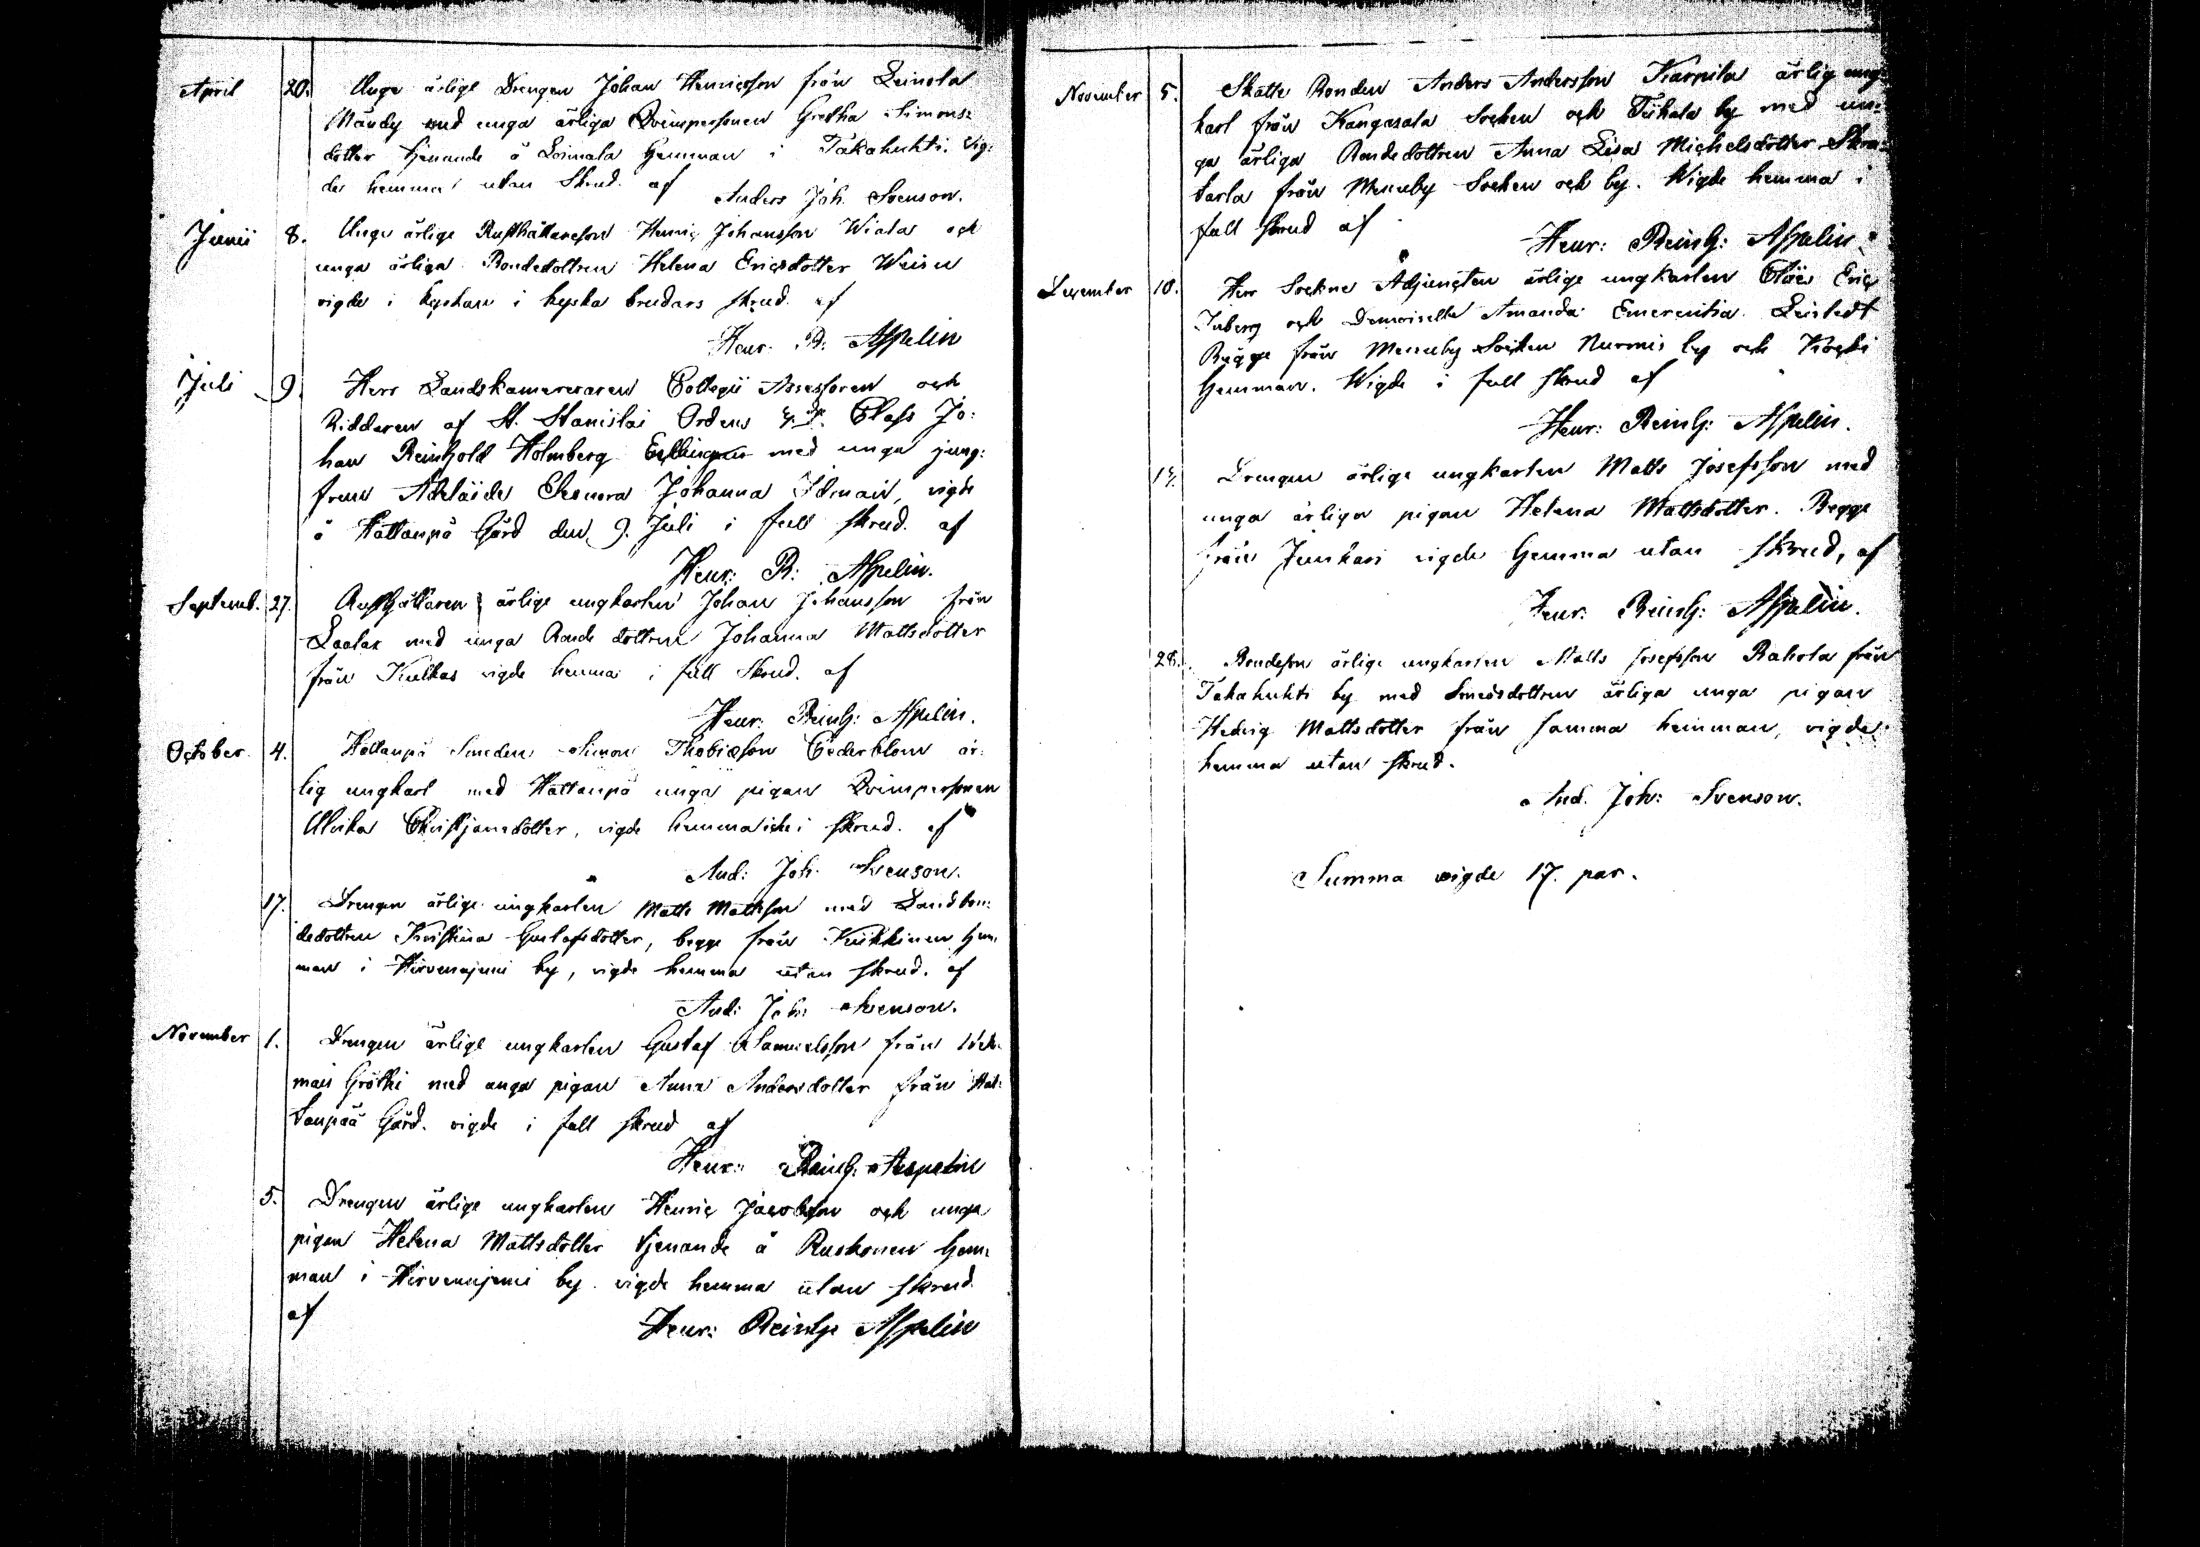 April 20. Unge ärlige Drengen Johan Henricsson från Leinola
Mändy med unga ärliga Qvinspersonen Gretha Simons:
dotter tjenande å Loimala Hemman i Takahuhti. Vig:
des hemma utan Skrud. af
Anders Joh. Svenson.
Junii 8. Unge ärlige Rusthållaresson Henric Johansson Wiala och
unga ärliga Bondedottren Helena Ericsdotter
vigde i kyrkan i kyska brudars skrud. af
Henr. R: Aspelin
Juli 9. Herr Landskamereraren Collegii Assessoren och
Ridderen af St. Stanislai Ordens Class Jo:
han Reinhold Holmberg med unga jung:
frun Adelaide Eleonora Johanna Idman, vigde
å Hattanpä Gård den 9. Juli i full skrud. af
Henr: R: Aspelin.
Septemb. 27. Rusthållaren ärlige ungkarlen Johan Johansson från
med unga Bonde dottren Johanna Mattsdotter
från Kulkas vigde hemma i full Skrud. af
Henr: Reinh: Aspelin.
October 4. Hattanpä Smeden Simon Thobiasson Cederblom är:
lig ungkarl med Hattanpä unga pigan Qvinspersonen
Ulrika Christjansdotter, vigde hemma icke i skrud. af
And: Joh. Svenson.
17. Drengen ärlige ungkarlen Matts Mattsson med Landbon:
dedottren Kristina Gustafsdotter, begge från Kiikkinen hem:
man i Hirvenijemi by, vigde hemma utan skrud. af
And: Joh: Svenson.
November 1. Drengen ärlige ungkarlen Gustaf Samuelsson från
med unga pigan Anna Andersdotter från Hat:
tanpää Gård. vigde i full skrud af
Henr: Reinh: Aspelin
5. Drengen ärlige ungkarlen Henric Jacobsson och unga
pigan Helena Mattsdotter tjenande å Ruskonen hem:
man i Hirvenijemi by. vigde hemma utan skrud
af
Henr: Reinh: Aspelin
November 5. Skatte Bonden Anders Andersson Karpila ärlig ung:
karl från Kangasala Socken och Tiihala by med un:
ga ärliga Bondedottren Anna Lisa Michelsdotter
från Messuby Socken och by. Wigde hemma i
full skrud af
Henr: Reinh: Aspelin
December 10. Herr Sockne Adjuncten ärlige ungkarlen Claës Eric
Inberg och Demoiselle Amanda Emerentia Leistedt
Bägge från Messuby Socken Nurmis by och Koski
Hemman. Wigde i full skrud af
Henr: Reinh: Aspelin.
Drengen ärlige ungkarlen Matts Josefsson med
unga ärliga pigan Helena Mattsdotter. Begge
från Junkari vigde hemma utan skrud, af
Henr: Reinh: Aspelin.
28. Bondeson ärlige ungkarlen Matts Josefsson Rahola från
Takahuhti by med Smedsdottren ärliga unga pigan
Hedvig Mattsdotter från samma hemman, vigde
hemma utan skrud.
And. Joh: Svenson.
Summa vigde 17. par.